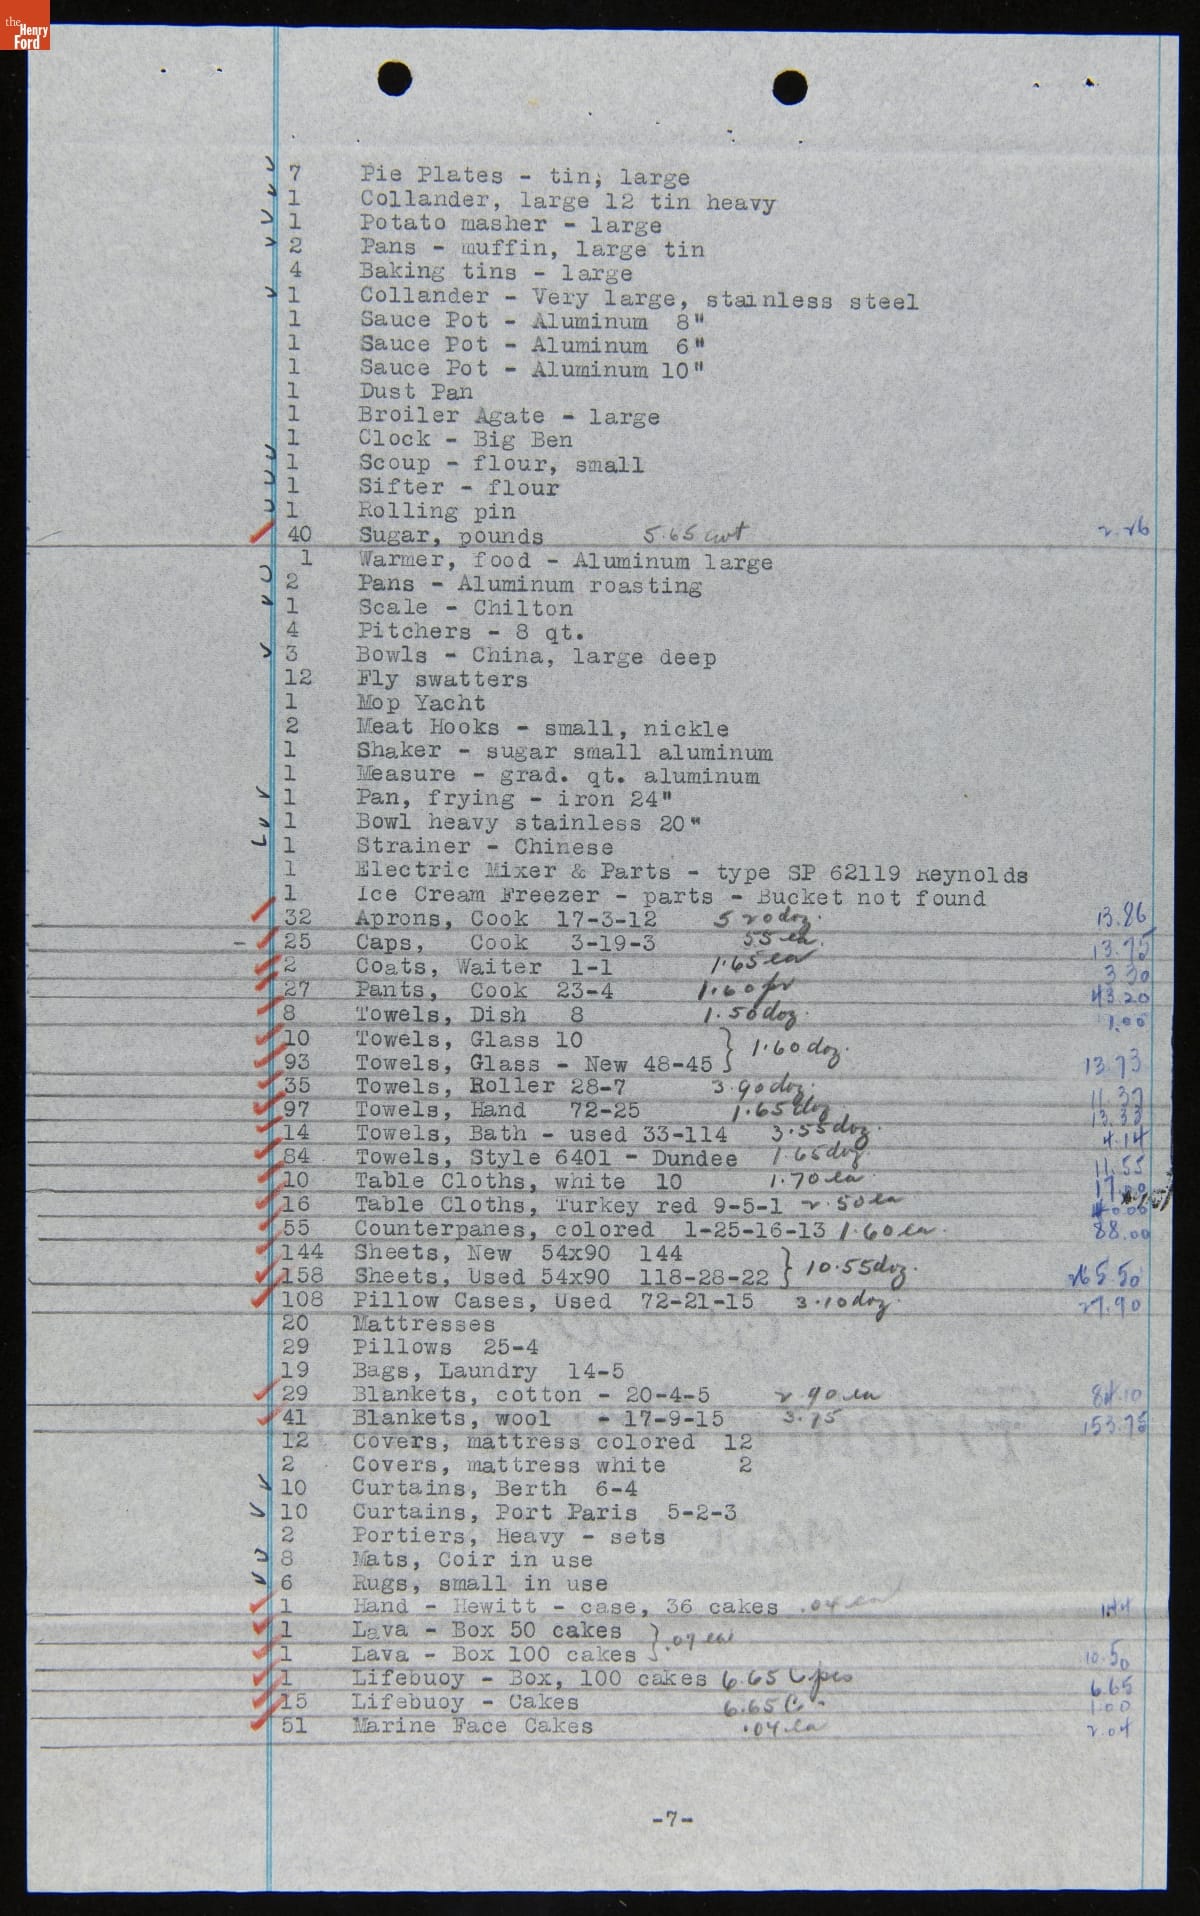 the Henry Ford
7 Pie Plates - tin, large
1 Collander, large 12 tin heavy
1 Potato masher - large
2 Pans - muffin, large tin
4 Baking tins - large
1 Collander - Very large, stainless steel
1 Sauce Pot - Aluminum 8"
1 Sauce Pot - Aluminum 6"
1 Sauce Pot - Aluminum 10"
1 Dust Pan
1 Broiler Agate - large
1 Clock - Big Ben
1 Scoup - flour, small
1 Sifter - flour
1 Rolling pin
40 Sugar, pounds 5.65 cwt 2.26
1 Warmer, food - Aluminum large
2 Pans - Aluminum roasting
1 Scale - Chilton
4 Pitchers - 8 qt.
3 Bowls - China, large deep
12 Fly swatters
1 Mop Yacht
2 Meat Hooks - small, nickle
1 Shaker - sugar small aluminum
1 Measure - grad. qt. aluminum
1 Pan, frying - iron 24"
1 Bowl heavy stainless 20"
1 Strainer - Chinese
1 Electric Mixer & Parts - type SP 62119 Reynolds
1 Ice Cream Freezer - parts - Bucket not found
32 Aprons, Cook 17-3-12 5 20 doz. 13.86
25 Caps, Cook 3-19-3 55 ea. 13.75
2 Coats, Waiter 1-1 1.65 ea 3 30
27 Pants, Cook 23-4 1.60 pr 43.20
8 Towels, Dish 8 1.50 doz. 1.00
10 Towels, Glass 10
93 Towels, Glass - New 48-45 } 1.60 doz. 13.73
35 Towels, Roller 28-7 3.90 doz. 11.37
97 Towels, Hand 72-25 1.65 doz 13.33
14 Towels, Bath - used 33-114 3.55 doz. 4.14
84 Towels, Style 6401 - Dundee 1.65 doz. 11.55
10 Table Cloths, white 10 1.70 ea 17.00
16 Table Cloths, Turkey red 9-5-1 2.50 ea
55 Counterpanes, colored 1-25-16-13 1.60 ea. 88.00
144 Sheets, New 54x90 144
158 Sheets, Used 54x90 118-28-22 } 10.55 doz. 265.50
108 Pillow Cases, Used 72-21-15 3.10 doz. 27.90
20 Mattresses
29 Pillows 25-4
19 Bags, Laundry 14-5
29 Blankets, cotton - 20-4-5 2.90 ea 84.10
41 Blankets, wool - 17-9-15 3.75 153.75
12 Covers, mattress colored 12
2 Covers, mattress white 2
10 Curtains, Berth 6-4
10 Curtains, Port Paris 5-2-3
2 Portiers, Heavy - sets
8 Mats, Coir in use
6 Rugs, small in use
1 Hand - Hewitt - case, 36 cakes .04 ea 1.44
1 Lava - Box 50 cakes
1 Lava - Box 100 cakes } .07 ea 10.50
1 Lifebuoy - Box, 100 cakes 6.65 C pcs 6.65
15 Lifebuoy - Cakes 6.65 C " 1.00
51 Marine Face Cakes .04 ea 2.04
-7-